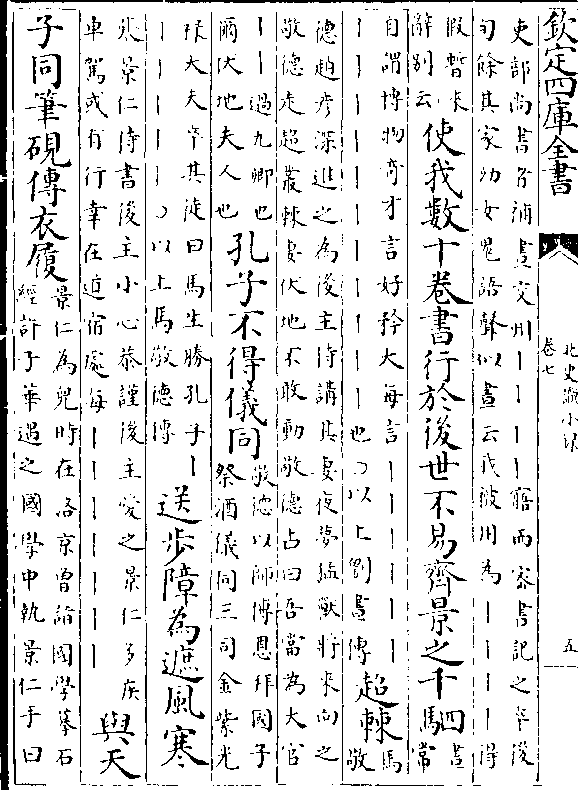 欽定四庫全書
北史識小録
卷七
五
吏部尚書者補晝交州｜｜｜｜寤而密書記之卒後
旬餘其家幼女鬼語聲似晝云我被用為｜｜｜｜得
假暫來
辭别云
使我數十卷書行於後世不易齊景之千駟
晝
常
自謂博物奇才言好矜大每言｜｜｜｜｜｜
｜｜｜｜｜｜｜｜｜｜也〇以上劉晝傳
超棘
馬
敬
德趙彥深進之為後主侍講其妻夜夢猛獸將來向之
敬德走超叢棘妻伏地不敢動敬德占曰吾當為大官
｜｜過九卿也
爾伏地夫人也
孔子不得儀同
敬德以師傅恩拜國子
祭酒儀同三司金紫光
禄大夫卒其徒曰馬生勝孔子｜
｜｜｜｜｜〇以上馬敬德傳
送步障為遮風寒
張景仁侍書後主小心恭謹後主愛之景仁多疾
車駕或有行幸在道宿處每｜｜｜｜｜｜｜
與天
子同筆硯傳衣履
景仁為兒時在洛京曾詣國學摹石
經許子華遇之國學中執景仁手曰